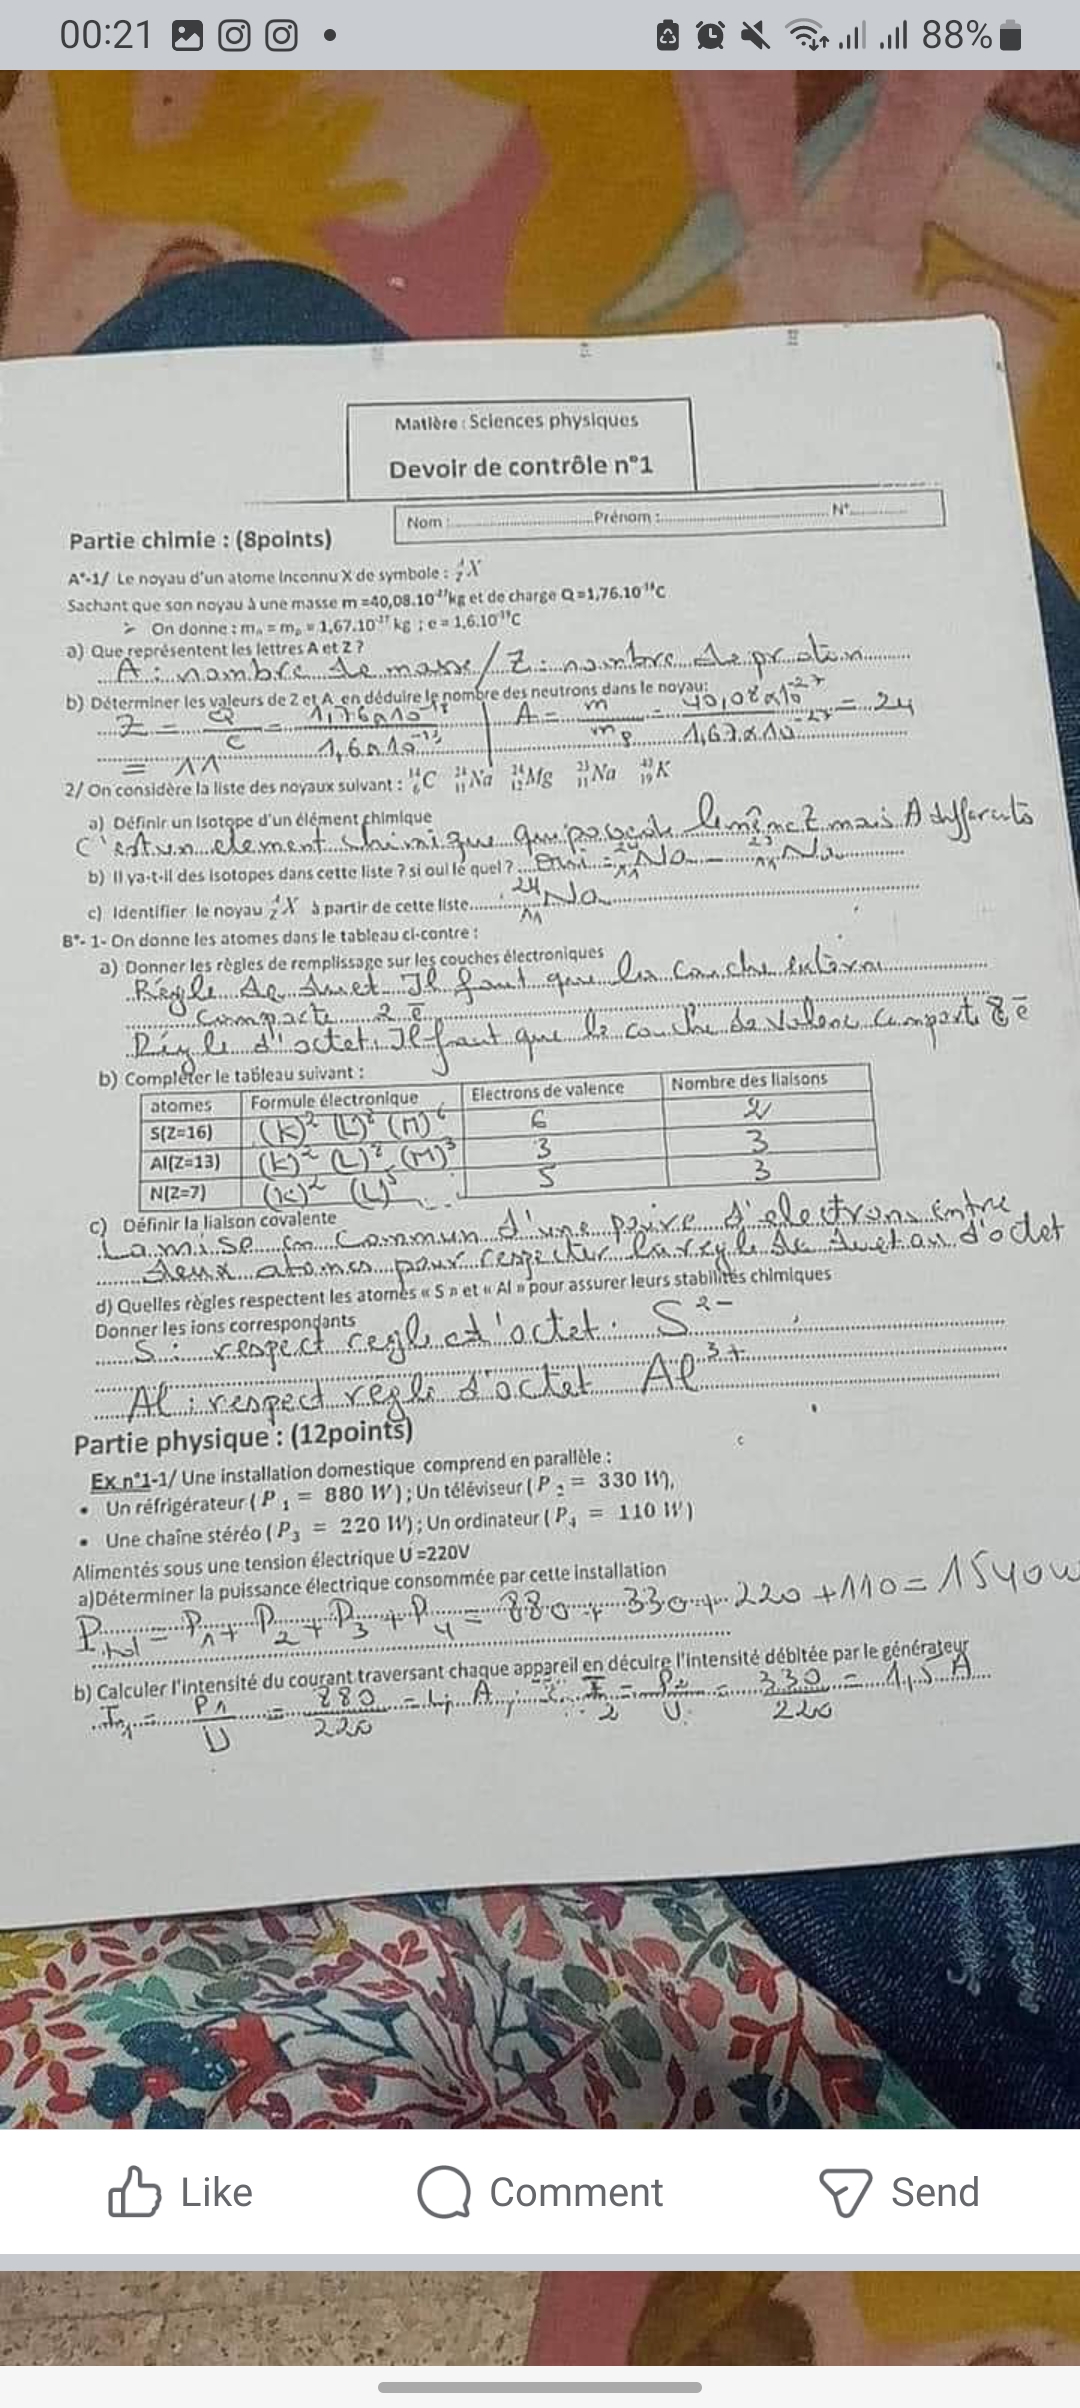 00:21
88%
Matière : Sciences physiques
Devoir de contrôle n°1
Nom :..............Prénom :..............N°..........
Partie chimie : (8points)
A°-1/ Le noyau d'un atome inconnu X de symbole : ᴬ_Z X
Sachant que son noyau à une masse m =40,08.10⁻²⁷kg et de charge Q=1,76.10⁻¹⁸C
➢ On donne : mₙ = mₚ = 1,67.10⁻²⁷ kg ; e = 1,6.10⁻¹⁹C
a) Que représentent les lettres A et Z ?
A : nombre de masse / Z : nombre de proton
b) Déterminer les valeurs de Z et A, en déduire le nombre des neutrons dans le noyau:
Z = Q/e = | A = m/mp = 40,08x10⁻²⁷ / 1,67x10⁻²⁷ = 24
= 11
2/ On considère la liste des noyaux suivant : ¹⁴₆C ²⁴₁₁Na ²⁴₁₂Mg ²³₁₁Na ₁₉K
a) Définir un isotope d'un élément chimique
C'est un element chimique qui possede le même Z mais A differents
b) Il ya-t-il des isotopes dans cette liste ? si oui le quel ? Oui = ²⁴₁₁Na - ²³₁₁Na
c) Identifier le noyau ᴬ_Z X à partir de cette liste ²⁴₁₁Na
B°- 1- On donne les atomes dans le tableau ci-contre :
a) Donner les règles de remplissage sur les couches électroniques
Régle de duet Il faut que la couche
2 ē
Régle d'octet. Il faut que la couche de valenc comporte 8 ē
b) Compléter le tableau suivant :
atomes Formule électronique Electrons de valence Nombre des liaisons
S(Z=16) (K)² (L)⁸ (M)⁶ 6 2
Al(Z=13) (K)² (L)⁸ (M)³ 3 3
N(Z=7) (K)² (L)⁵ 5 3
c) Définir la liaison covalente
La mise en commun d'une paire d'electrons entre
deux atomes pour respecter la regle de duet ou d'octet
d) Quelles règles respectent les atomes « S » et « Al » pour assurer leurs stabilités chimiques
Donner les ions correspondants
S : respect regle d'octet. S²⁻
Al : respect regle d'octet Al³⁺
Partie physique : (12points)
Ex n°1-1/ Une installation domestique comprend en parallèle :
• Un réfrigérateur ( P₁ = 880 W) ; Un téléviseur ( P₂ = 330 W),
• Une chaîne stéréo ( P₃ = 220 W) ; Un ordinateur ( P₄ = 110 W)
Alimentés sous une tension électrique U =220V
a)Déterminer la puissance électrique consommée par cette installation
= P₁ + P₂ + P₃ + P₄ = 880 + 330 + 220 + 110 = 1540 w
b) Calculer l'intensité du courant traversant chaque appareil en décuire l'intensité débitée par le générateur
I₁ = P₁/U = 880/220 = 4 A ; I₂ = P₂/U = 330/220 = 1,5 A
Like
Comment
Send